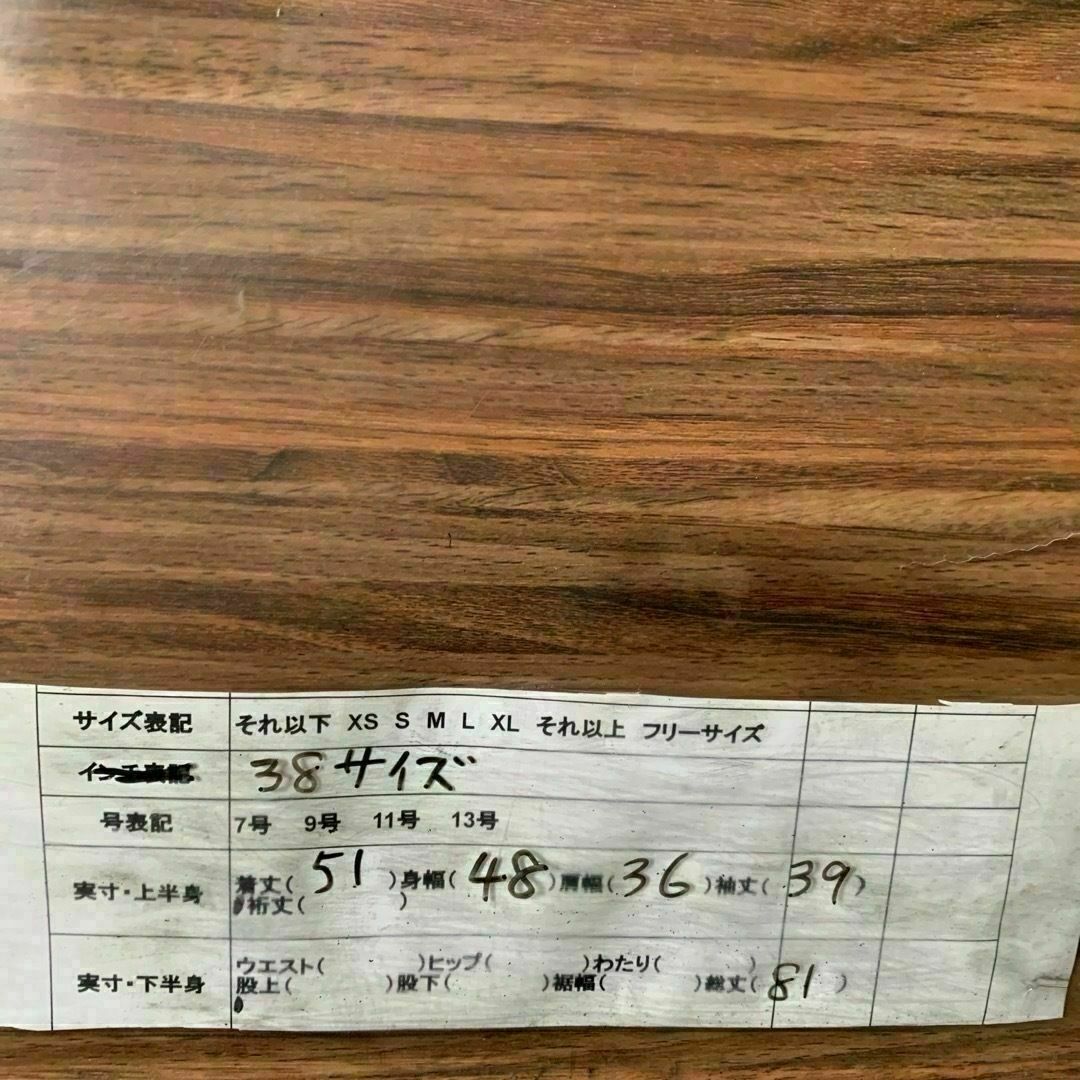 サイズ表記 それ以下 XS S M L XL それ以上 フリーサイズ
インチ表記 38サイズ
号表記 7号 9号 11号 13号
実寸・上半身 着丈( 51 )身幅( 48 )肩幅( 36 )袖丈( 39 )
裄丈( )
実寸・下半身 ウエスト( )ヒップ( )わたり( )
股上( )股下( )裾幅( )総丈( 81 )